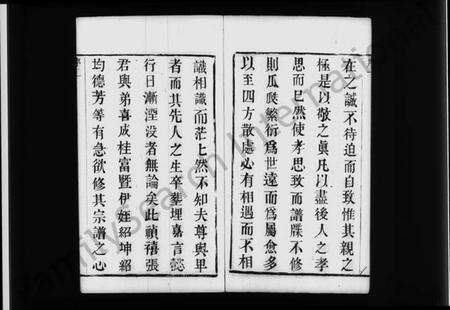 在之誠不待迫而自致惟其親之
極是以敬之眞凡以盡後人之孝
思而已然使孝思致而譜牒不修
則瓜瓞繁衍爲世遠而爲屬愈多
以至四方散處必有相遇而不相
識相識而茫然不知夫尊與卑
者而其先人之生卒葬埋嘉言懿
行日漸湮没者無論矣此禎禧張
君與弟喜成桂富暨伊姪紹坤紹
均德芳等有急欲修其宗譜之心
FamilySearch International